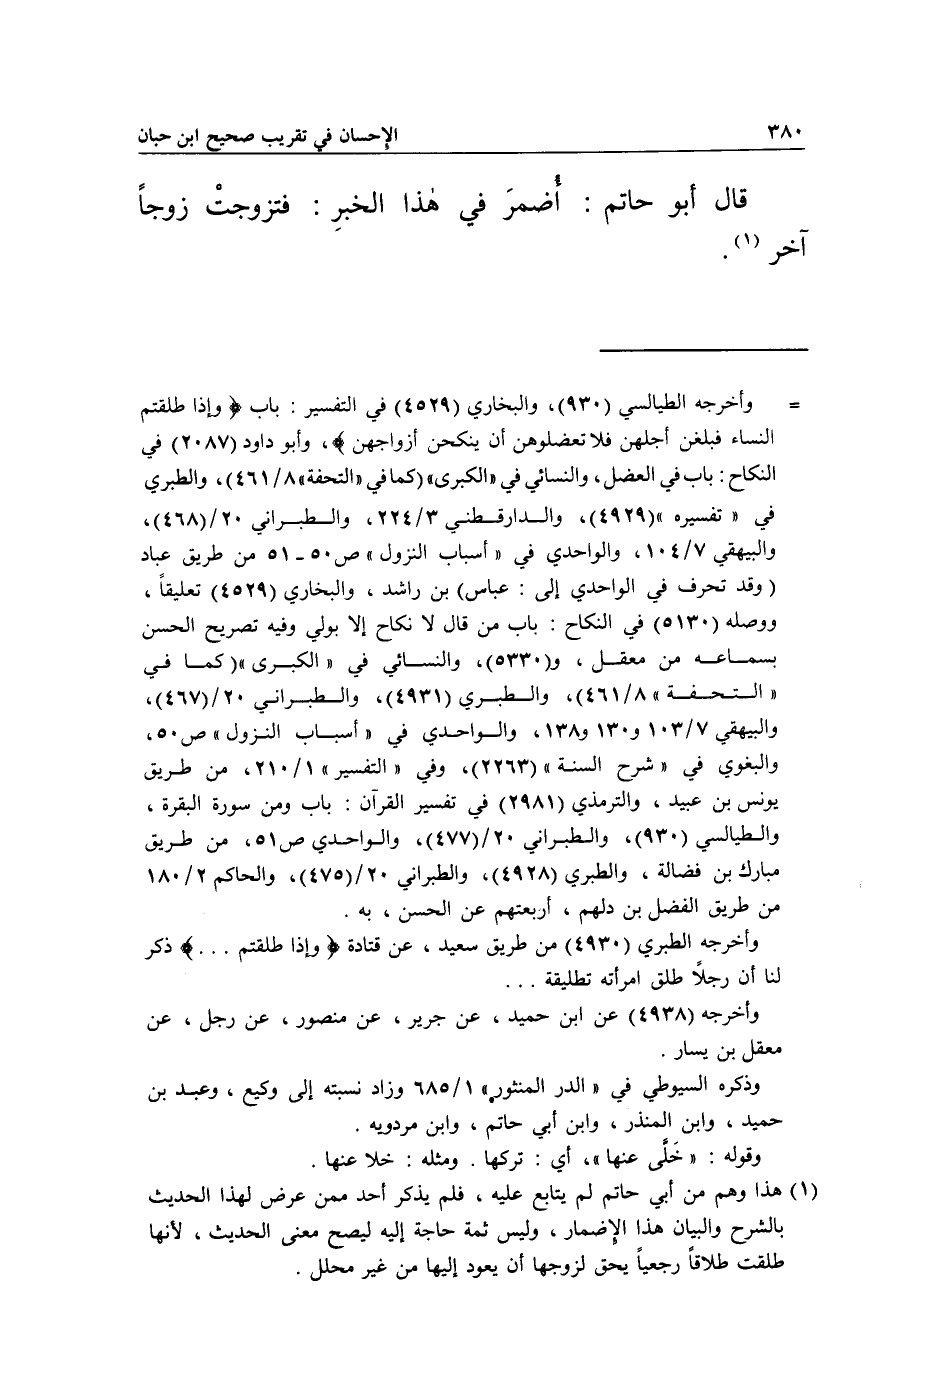 ٣٨٠ الإحسان في تقريب صحيح ابن حبان
قال أبو حاتم : أُضمرَ في هٰذا الخبرِ : فتزوجتْ زوجاً
آخر (١) .
= وأخرجه الطيالسي (٩٣٠)، والبخاري (٤٥٢٩) في التفسير : باب ﴿ وإذا طلقتم
النساء فبلغن أجلهن فلا تعضلوهن أن ينكحن أزواجهن ﴾، وأبو داود (٢٠٨٧) في
النكاح : باب في العضل، والنسائي في «الكبرى» (كما في «التحفة» ٤٦١/٨)، والطبري
في « تفسيره »(٤٩٢٩)، والدارقطني ٢٢٤/٣، والطبراني ٢٠/(٤٦٨)،
والبيهقي ١٠٤/٧، والواحدي في « أسباب النزول » ص٥٠ ـ ٥١ من طريق عباد
( وقد تحرف في الواحدي إلى : عباس) بن راشد ، والبخاري (٤٥٢٩) تعليقاً ،
ووصله (٥١٣٠) في النكاح : باب من قال لا نكاح إلا بولي وفيه تصريح الحسن
بسماعه من معقل ، و(٥٣٣٠)، والنسائي في « الكبرى »(كما في
« التحفة » ٤٦١/٨)، والطبري (٤٩٣١)، والطبراني ٢٠/(٤٦٧)،
والبيهقي ١٠٣/٧ و١٣٠ و١٣٨، والواحدي في « أسباب النزول » ص٥٠،
والبغوي في « شرح السنة » (٢٢٦٣)، وفي « التفسير » ٢١٠/١، من طريق
يونس بن عبيد ، والترمذي (٢٩٨١) في تفسير القرآن : باب ومن سورة البقرة ،
والطيالسي (٩٣٠)، والطبراني ٢٠/(٤٧٧)، والواحدي ص٥١، من طريق
مبارك بن فضالة ، والطبري (٤٩٢٨)، والطبراني ٢٠/(٤٧٥)، والحاكم ١٨٠/٢
من طريق الفضل بن دلهم ، أربعتهم عن الحسن ، به .
وأخرجه الطبري (٤٩٣٠) من طريق سعيد ، عن قتادة ﴿ وإذا طلقتم . . . ﴾ ذكر
لنا أن رجلاً طلق امرأته تطليقة . . .
وأخرجه (٤٩٣٨) عن ابن حميد ، عن جرير ، عن منصور ، عن رجل ، عن
معقل بن يسار .
وذكره السيوطي في « الدر المنثور» ٦٨٥/١ وزاد نسبته إلى وكيع ، وعبد بن
حميد ، وابن المنذر ، وابن أبي حاتم ، وابن مردويه .
وقوله : « خَلَّى عنها »، أي : تركها . ومثله : خلا عنها .
(١) هذا وهم من أبي حاتم لم يتابع عليه ، فلم يذكر أحد ممن عرض لهذا الحديث
بالشرح والبيان هذا الإضمار ، وليس ثمة حاجة إليه ليصح معنى الحديث ، لأنها
طلقت طلاقاً رجعياً يحق لزوجها أن يعود إليها من غير محلل .